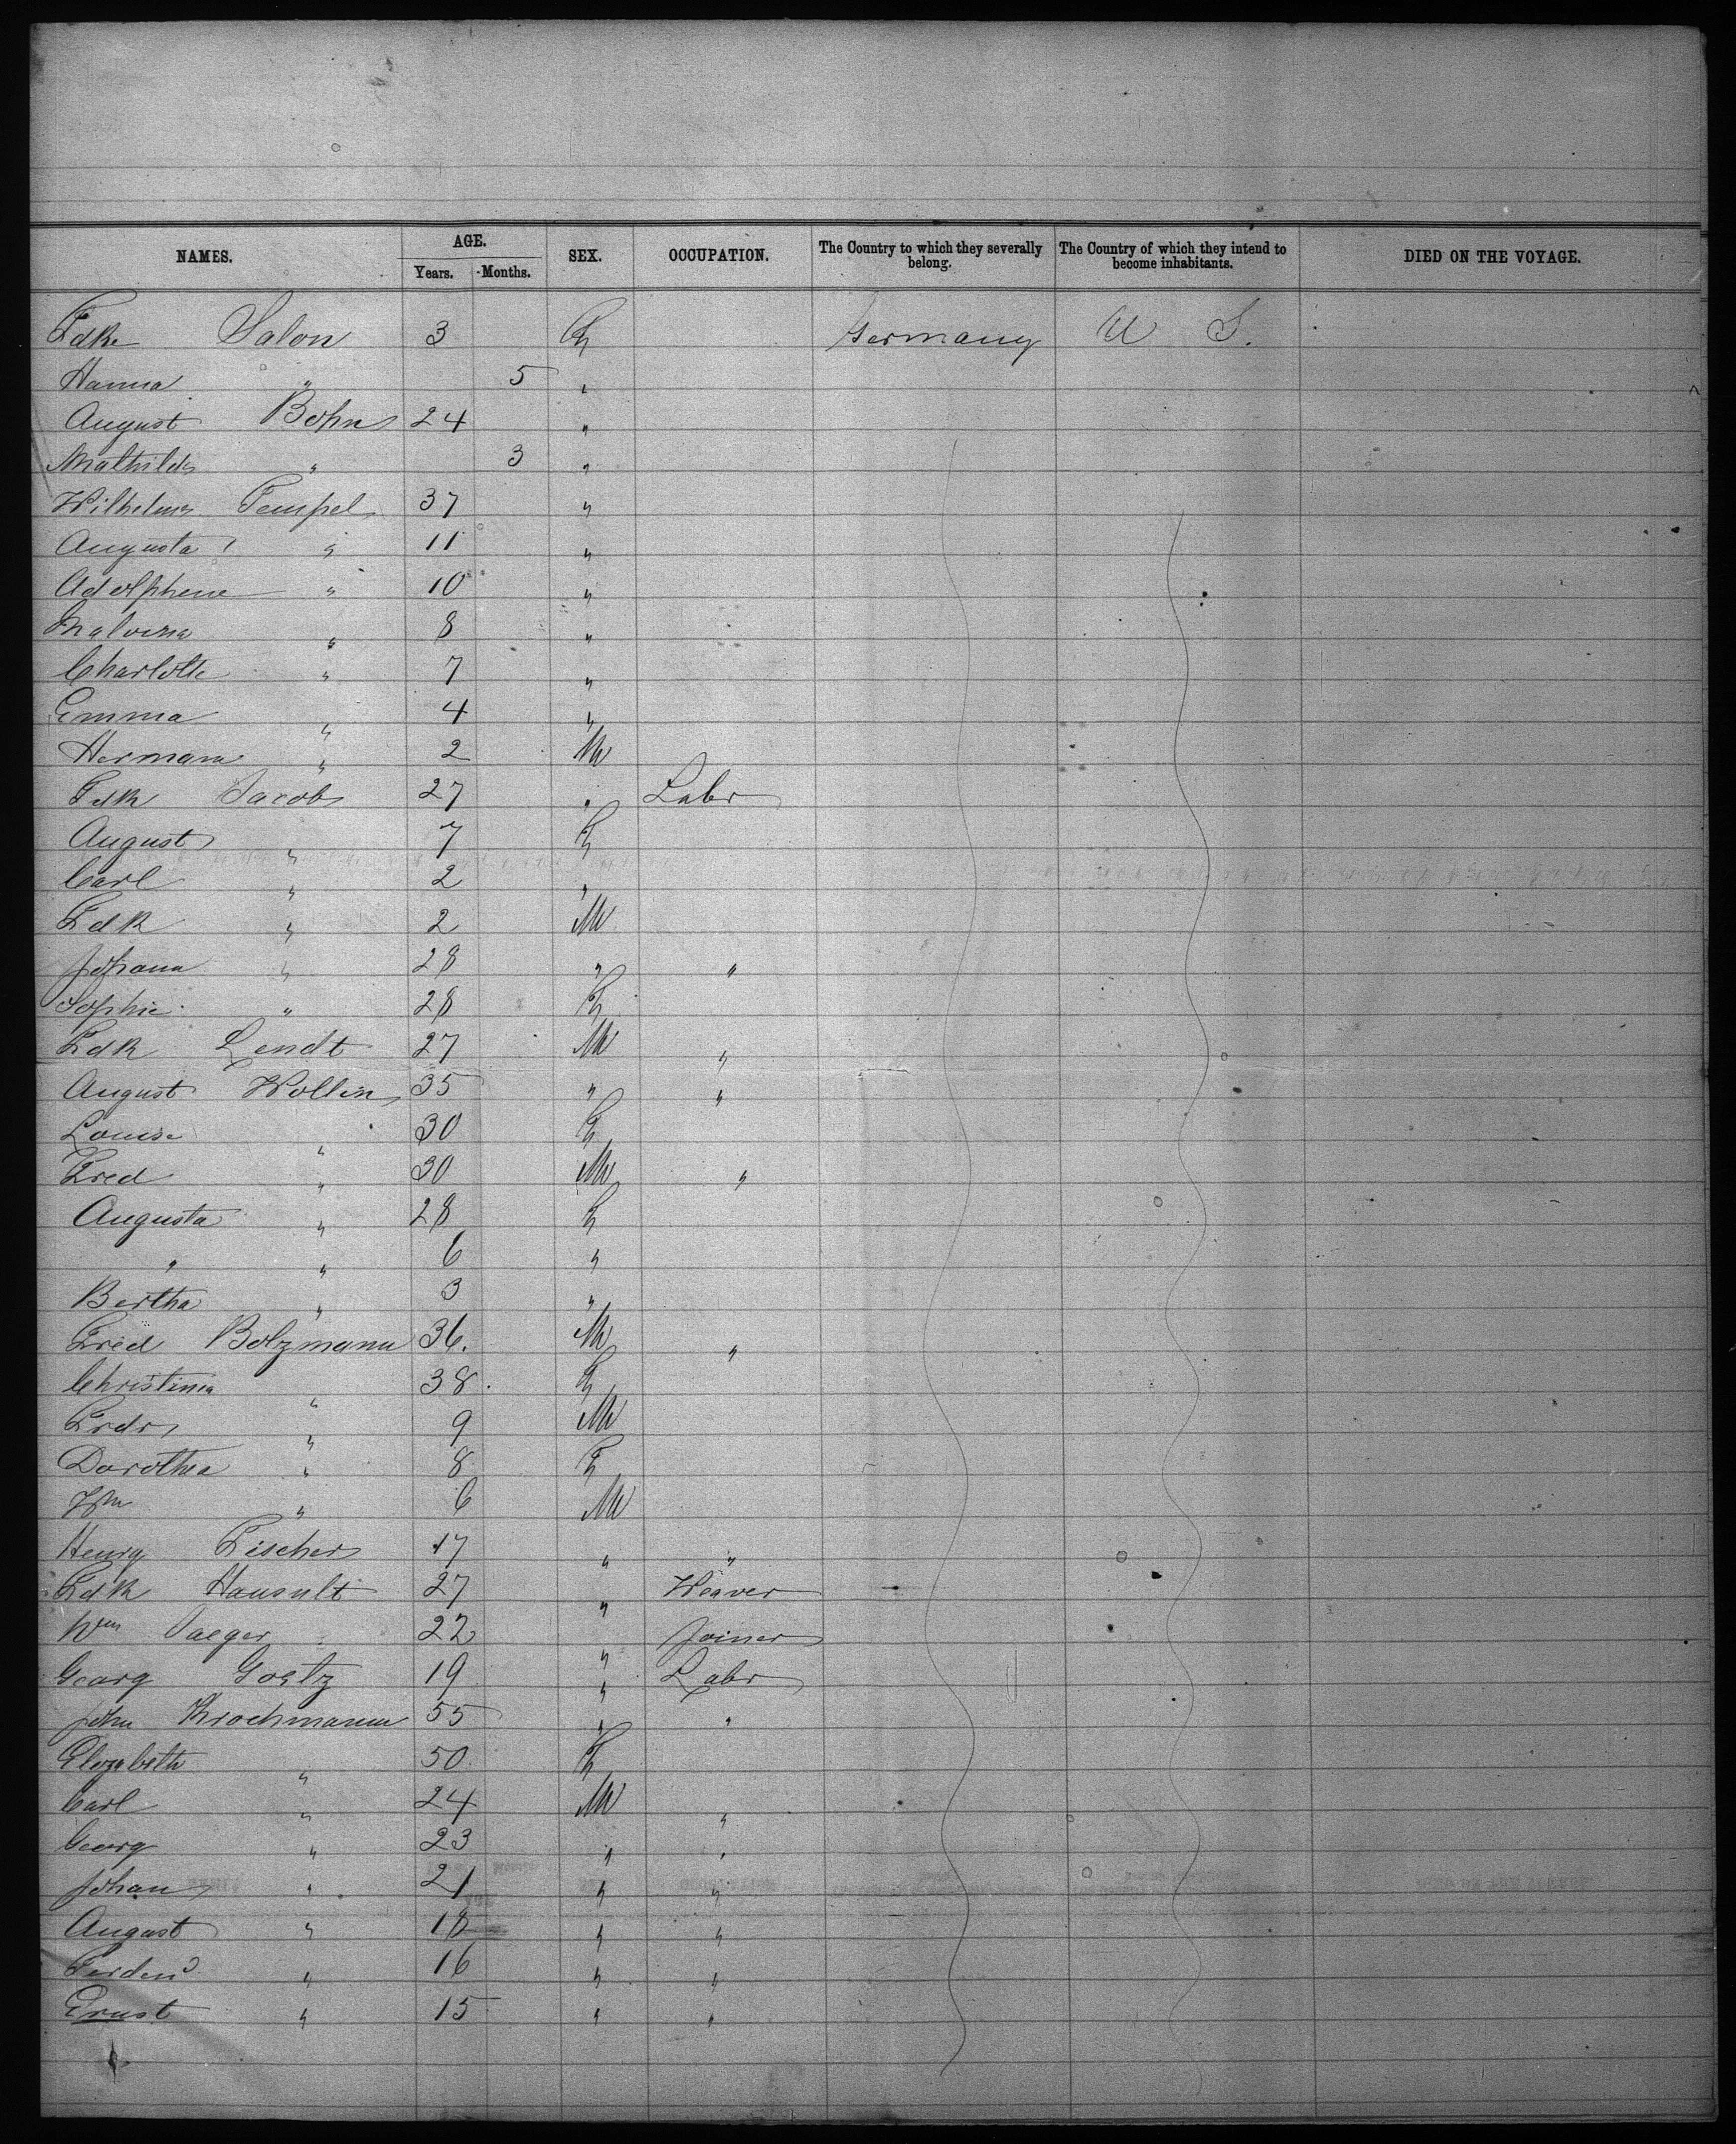 NAMES. AGE. SEX. OCCUPATION. The Country to which they severally belong. The Country of which they intend to become inhabitants. DIED ON THE VOYAGE.
Years. Months.
Fdke Salon 3 F Germany U S.
Hanna " 5 "
August Bohn 24 "
Mathilde " 3 "
Wilhelm Tempel 37 "
Augusta " 11 "
Adolphene " 10 "
Malvina " 8 "
Charlotte " 7 "
Emma " 4 "
Hermann " 2 M
Fdk Jacobs 27 " Labr
August " 7 F
Carl " 2 "
Fdk " 2 M
Johann " 28 " "
Sophie " 28 F
Fdk Lendt 27 M "
August Wollin 35 " "
Louise " 30 F
Fred " 30 M "
Augusta " 28 F
" " 6 "
Bertha " 3 "
Fried Bolzmann 36. M "
Christina " 38. F
Frdr " 9 M
Dorothea " 8 F
Wm " 6 M
Henry Fischer 17 " "
Fdk Hausult 27 " Weaver
Wm Jaeger 22 " Joiner
Georg Goetz 19 " Labr
John Krochmann 55 " "
Elozabeth " 50 F
Carl " 24 M "
Georg " 23 " "
Johan " 21 " "
August " 18 " "
Ferdend " 16 " "
Ernst " 15 " "